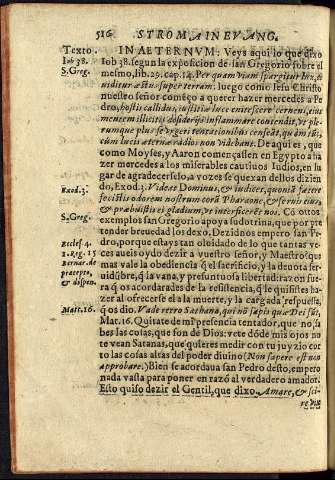 516 STROMA IN EVANG.
Texto. IN AETERNVM: Veys aqui lo que dixo
Iob 38. Iob 38. segun la exposicion de san Gregorio sobre el
S. Greg. mesmo, lib. 29. cap. 14. Per quam viam spargitur lux, di
uiditur æstus super terram: luego como Iesu Christo
nuestro señor começo a querer hazer mercedes a Pe
dro, hostis callidus, iustitiæ lucem
menem illicitis desiderijs inflammare contendit, vt ple
rumque plus se vrgeri tentationibus censeat, quàm
cum lucis æternæ radios non videbant. De aqui es, que
como Moyses, y Aaron començassen en Egypto a ha
zer mercedes a los miserables cautiuos Iudios, en lu
gar de agradecerselo, a vozes se quexan dellos dizien
Exod. 3. do, Exod. 3. Videat Dominus, & iudicet, quoniã fætere
fecistis odorem nostrum corã Pharaone, & seruis eius,
& præbuistis ei gladium, vt interficeret nos. Cõ otros
S. Greg. exemplos san Gregorio apoya su dotrina, que por pre
tender breuedad los dexo. Dezidnos empero san Pe
Eclesi. 4. dro, por que estays tan oluidado de lo que tantas ve
1. Reg. 15 zes aueis oydo dezir a vuestro señor, y Maestro (que
Bernar. de mas vale la obediencia, q̃ el sacrificio, y la deuota ser
precepto, uidũbre, q̃ la vana, y presuntuosa libertad: razon fue
& dispen. ra q̃ os acordarades de la resistencia, q̃ le quisistes ha
zer al ofrecerse el a la muerte, y la cargada respuesta,
Matt. 16. q̃ os dio. Vade retro Sathana, qui nõ sapis quæ Dei sũt,
Mat. 16. Quitate de mi presencia tentador, que no sa
bes las cosas, que son de Dios: vete dõde mis ojos no
te vean Satanas, que quieres medir con tu juyzio cor
to las cosas altas del poder diuino (Non sapere est non
approbare.) Bien se acordaua san Pedro desto, empero
nada vasta para poner en razõ al verdadero amador.
Esto quiso dezir el Gentil, que dixo. Amare, & sa-